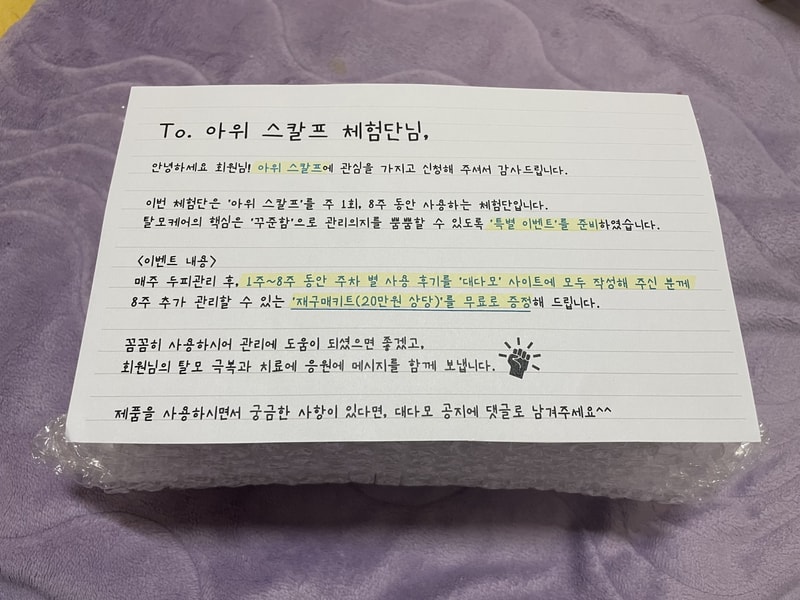 To. 아위 스칼프 체험단님,
안녕하세요 회원님! 아위 스칼프에 관심을 가지고 신청해 주셔서 감사드립니다.
이번 체험단은 '아위 스칼프'를 주 1회, 8주 동안 사용하는 체험단입니다.
탈모케어의 핵심은 '꾸준함'으로 관리의지를 뿜뿜할 수 있도록 '특별 이벤트'를 준비하였습니다.
<이벤트 내용>
매주 두피관리 후, 1주~8주 동안 주차 별 사용 후기를 '대다모' 사이트에 모두 작성해 주신 분께
8주 추가 관리할 수 있는 '재구매키트(20만원 상당)'를 무료로 증정해 드립니다.
꼼꼼히 사용하시어 관리에 도움이 되셨으면 좋겠고,
회원님의 탈모 극복과 치료에 응원에 메시지를 함께 보냅니다.
제품을 사용하시면서 궁금한 사항이 있다면, 대다모 공지에 댓글로 남겨주세요^^